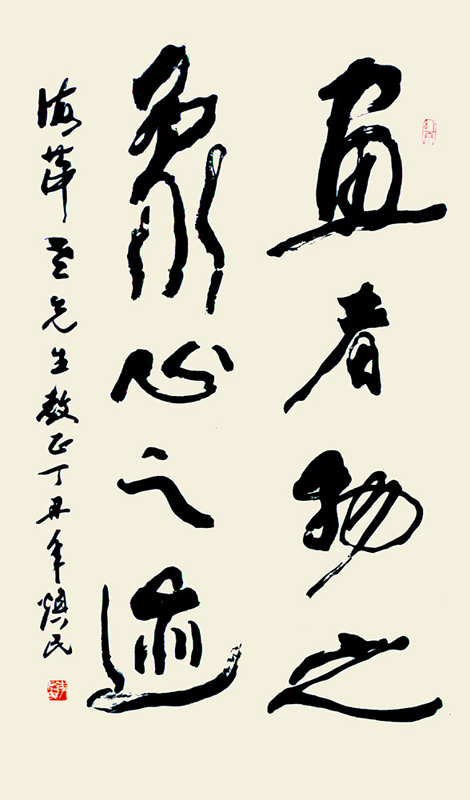 画者物之
象心之迹
海萍 先生教正丁丑年焕民